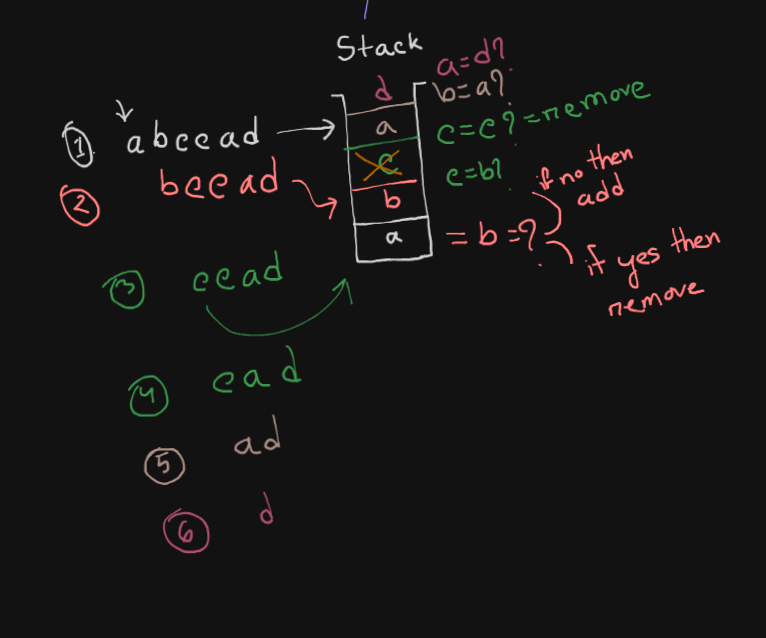 Stack
a=d?
d
b=a?
① abccad
a
c=c?=remove
c
c=b?
if no then
add
② bccad
b
a
= b =?
if yes then
remove
③ ccad
④ cad
⑤ ad
⑥ d